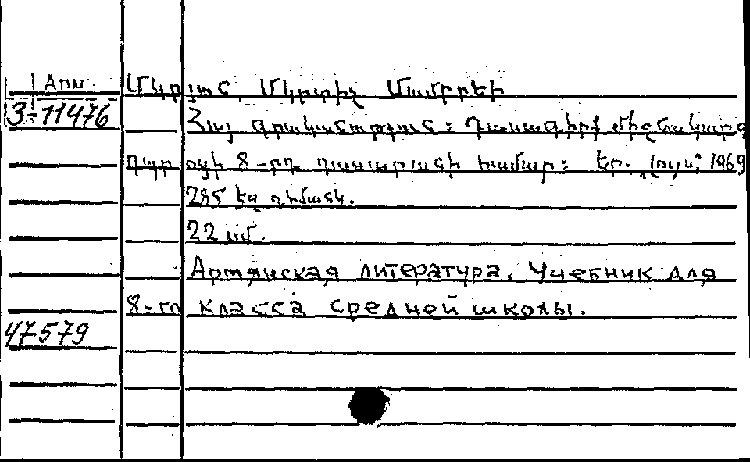 Арм.
Մկրյան Մկրտիչ Մամբրեի
3-11476
Հայ գրականություն: Դասագիրք միջնակարգ
դպրոցի 8-րդ դասարանի համար: Եր. լույս, 1969
285 էջ դիմանկ.
22 սմ.
Армянская литература. Учебник для
8-го класса средней школы.
47579